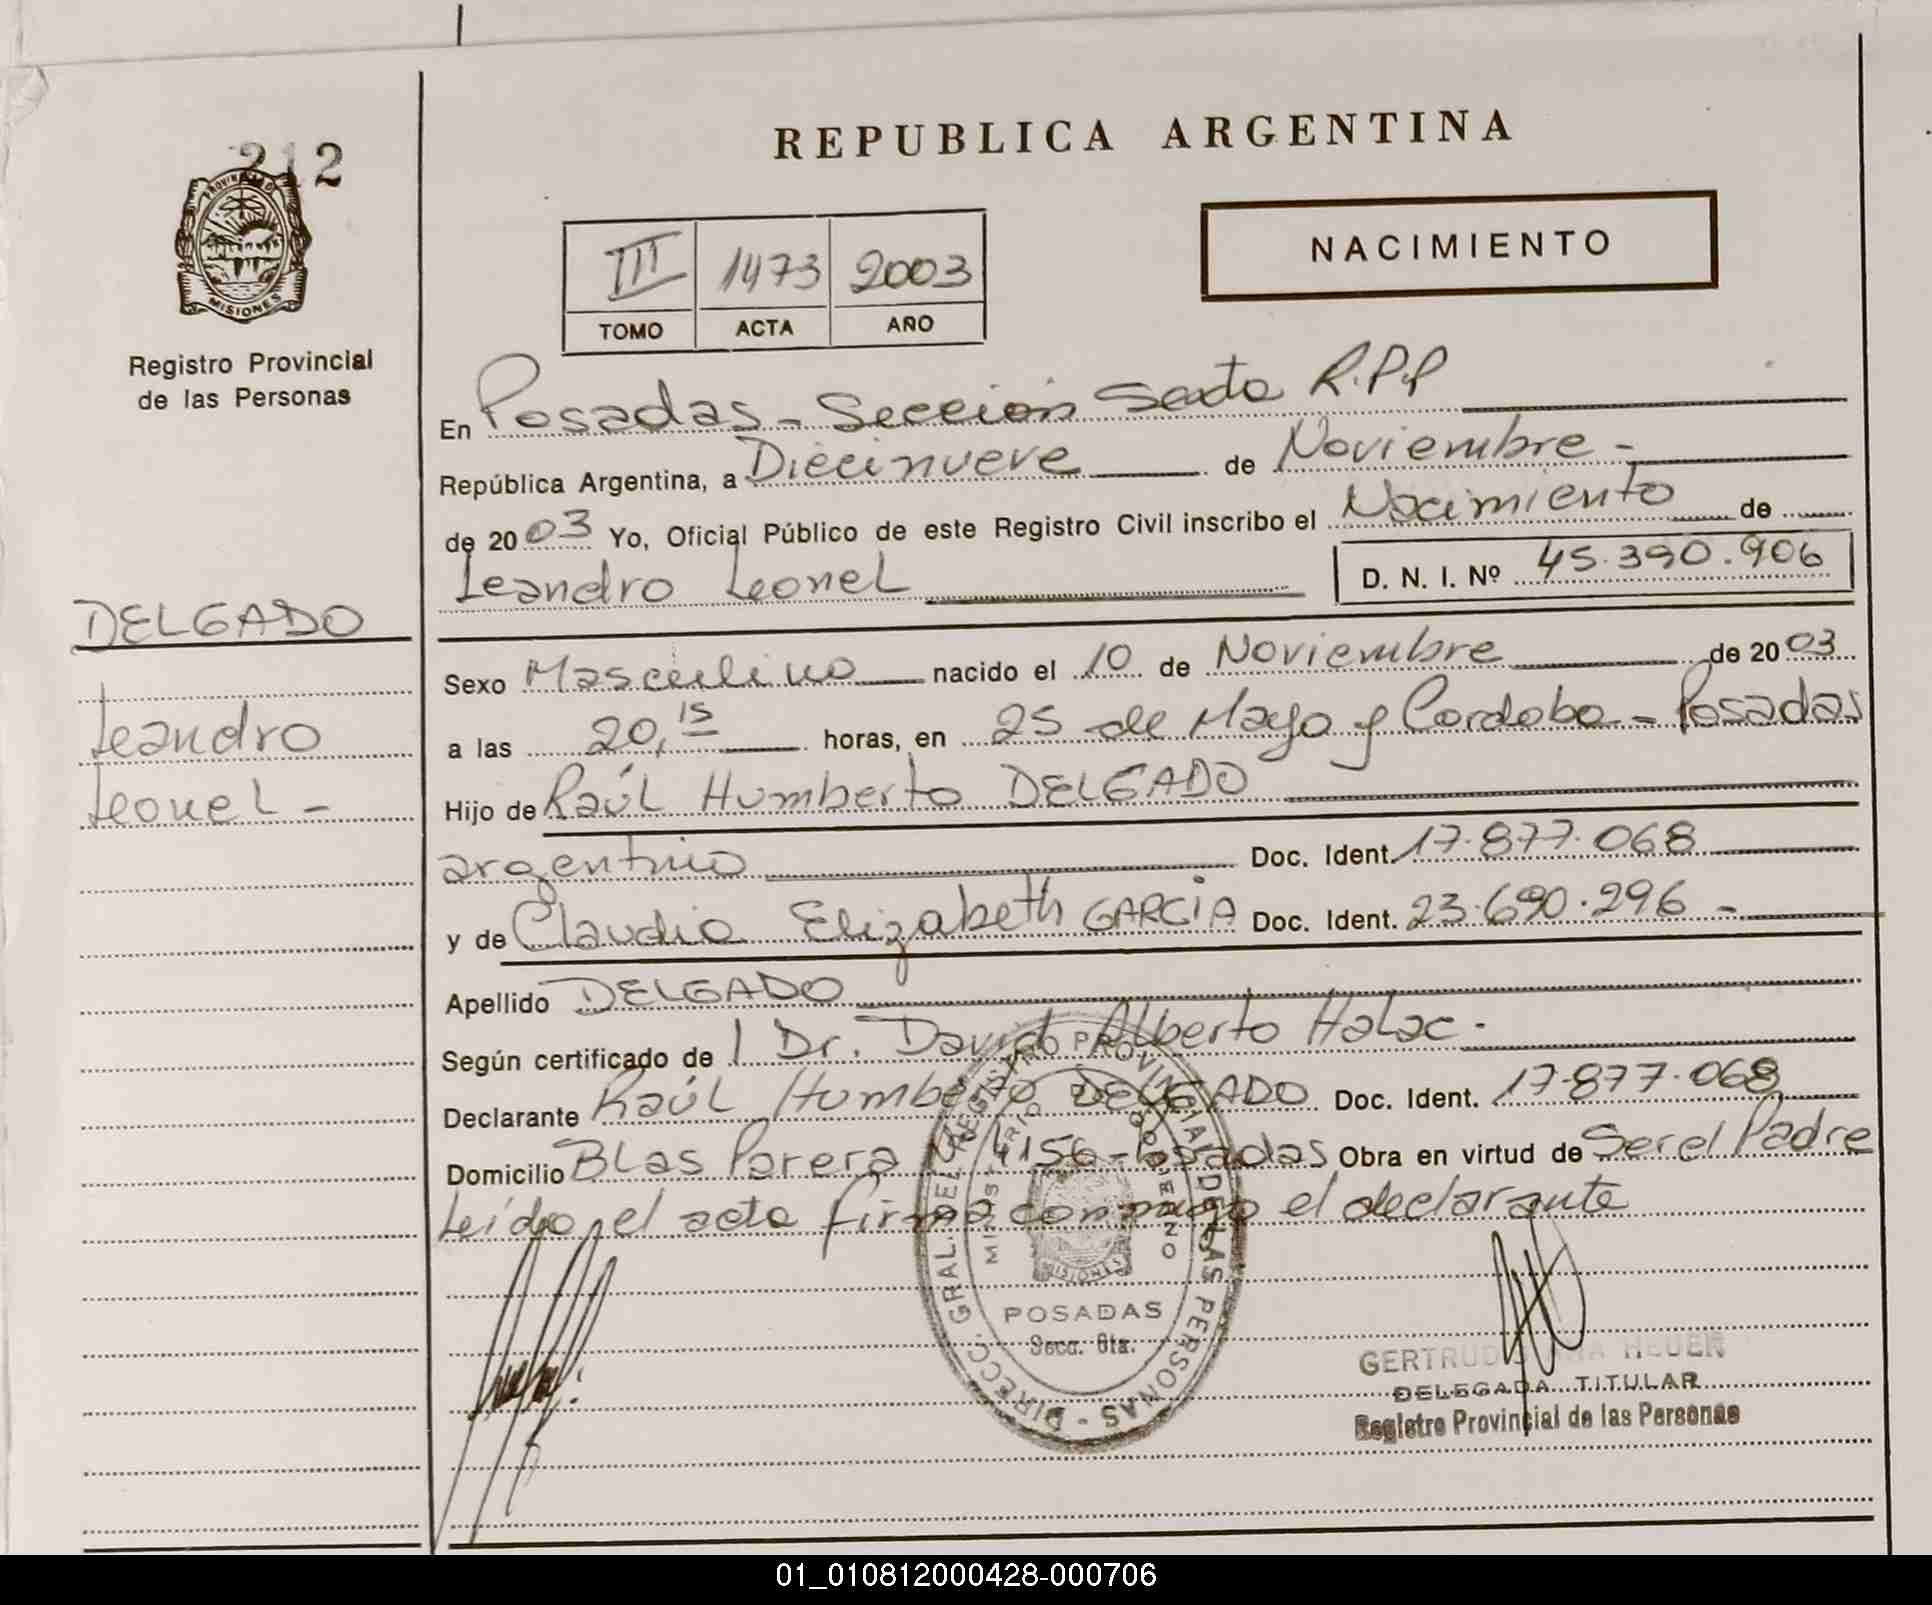 REPUBLICA ARGENTINA
212
PROVINCIA DE
MISIONES
Registro Provincial
de las Personas
NACIMIENTO
III 1473 2003
TOMO ACTA AÑO
En Posadas - Sección Sexta R.P.P
República Argentina, a Diecinueve de Noviembre -
de 2003 Yo, Oficial Público de este Registro Civil inscribo el Nacimiento de
Leandro Leonel D. N. I. Nº 45.390.906
DELGADO
Leandro
Leonel -
Sexo Masculino nacido el 10 de Noviembre de 2003
a las 20,15 horas, en 25 de Mayo y Cordoba - Posadas
Hijo de Raúl Humberto DELGADO
argentino Doc. Ident. 17.877.068
y de Claudia Elizabeth GARCIA Doc. Ident. 23.690.296 -
Apellido DELGADO
Según certificado de l Dr. David Alberto Halac -
Declarante Raúl Humberto DELGADO Doc. Ident. 17.877.068
Domicilio Blas Parera Nº 4156 - Posadas Obra en virtud de Ser el Padre
Leída el acta firma conmigo el declarante
DIRECC. GRAL. DEL REGISTRO PROVINCIAL DE LAS PERSONAS
MINISTERIO DE GOBIERNO
MISIONES
POSADAS
Secc. 6ta.
GERTRUDIS HEUER
DELEGADA TITULAR
Registro Provincial de las Personas
01_010812000428-000706